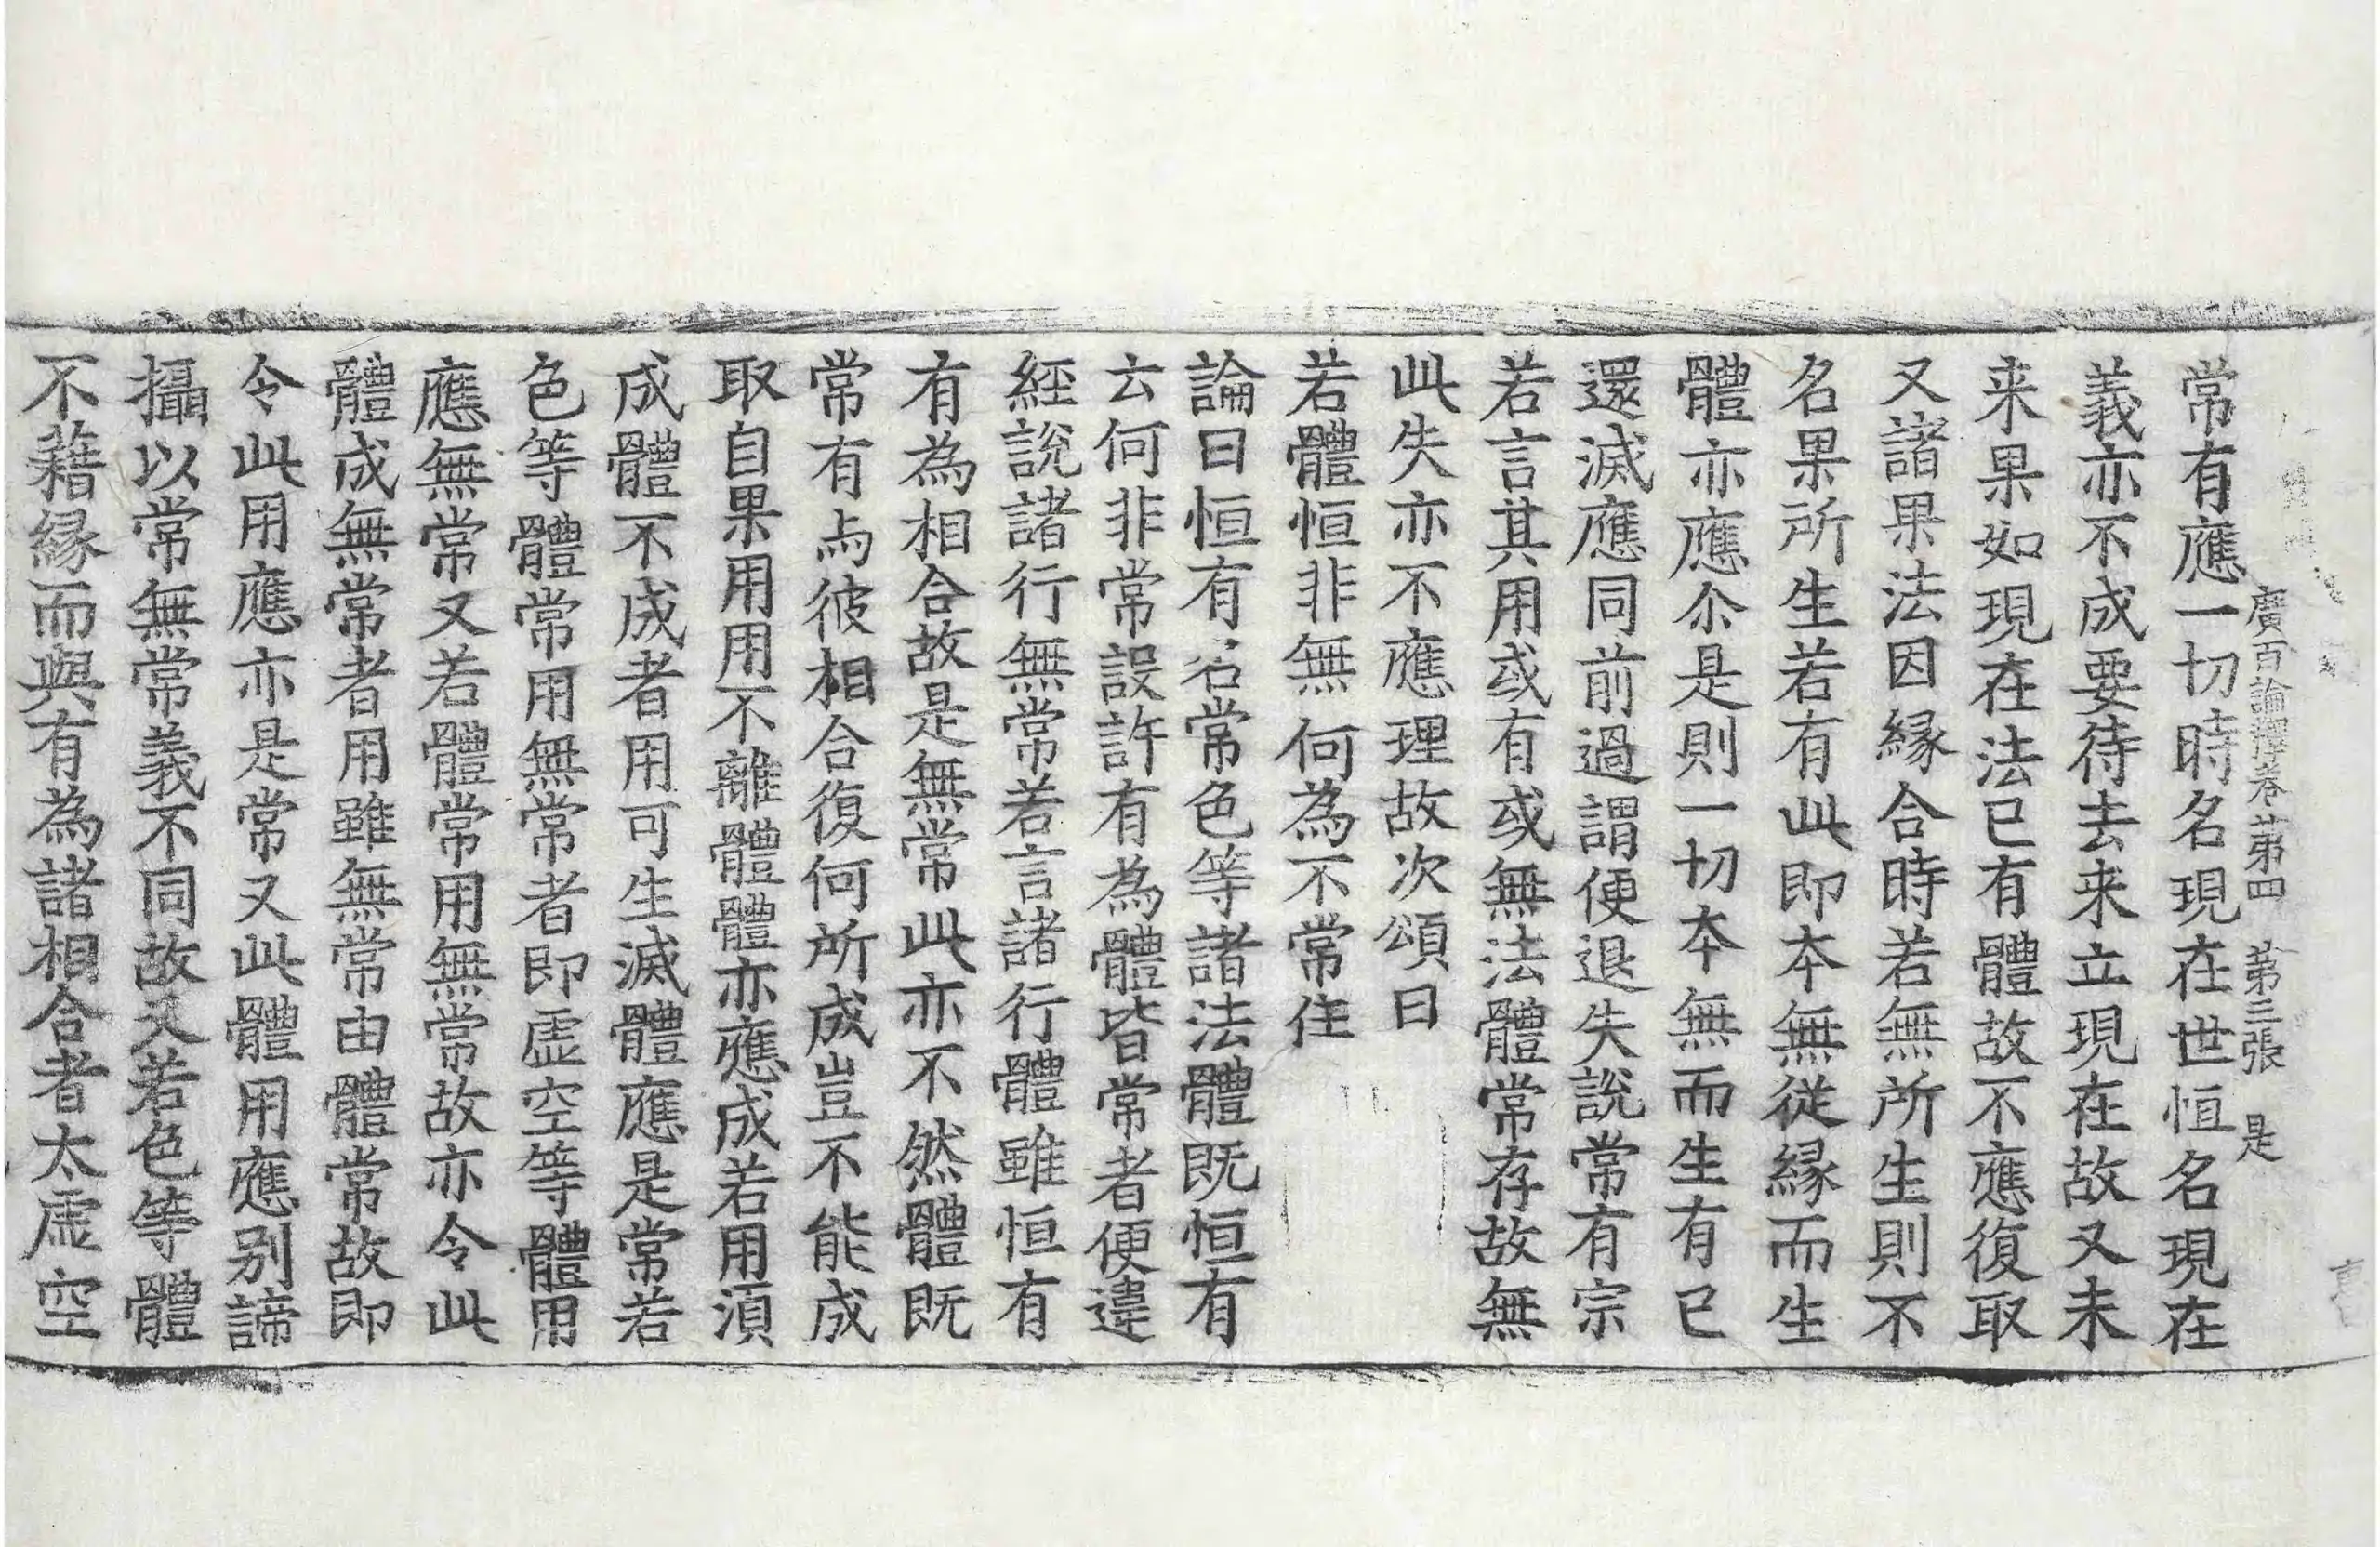 廣百論釋卷苐四　苐三張　是
常有應一切時名現在世恒名現在
義亦不成要待去来立現在故又未
来果如現在法已有體故不應復取
又諸果法因縁合時若無所生則不
名果所生若有此即本無從縁而生
體亦應尒是則一切本無而生有已
還滅應同前過謂便退失說常有宗
若言其用或有或無法體常存故無
此失亦不應理故次頌曰
若體恒非無何為不常住
論曰恒有名常色等諸法體既恒有
云何非常設許有為體皆常者便違
經說諸行無常若言諸行體雖恒有
有為相合故是無常此亦不然體既
常有与彼相合復何所成豈不能成
取自果用用不離體體亦應成若用湏
成體不成者用可生滅體應是常若
色等體常用無常者即虚空等體用
應無常又若體常用無常故亦令此
體成無常者用雖無常由體常故即
令此用應亦是常又此體用應別諦
攝以常無常義不同故又若色等體
不藉縁而與有為諸相合者太虚空